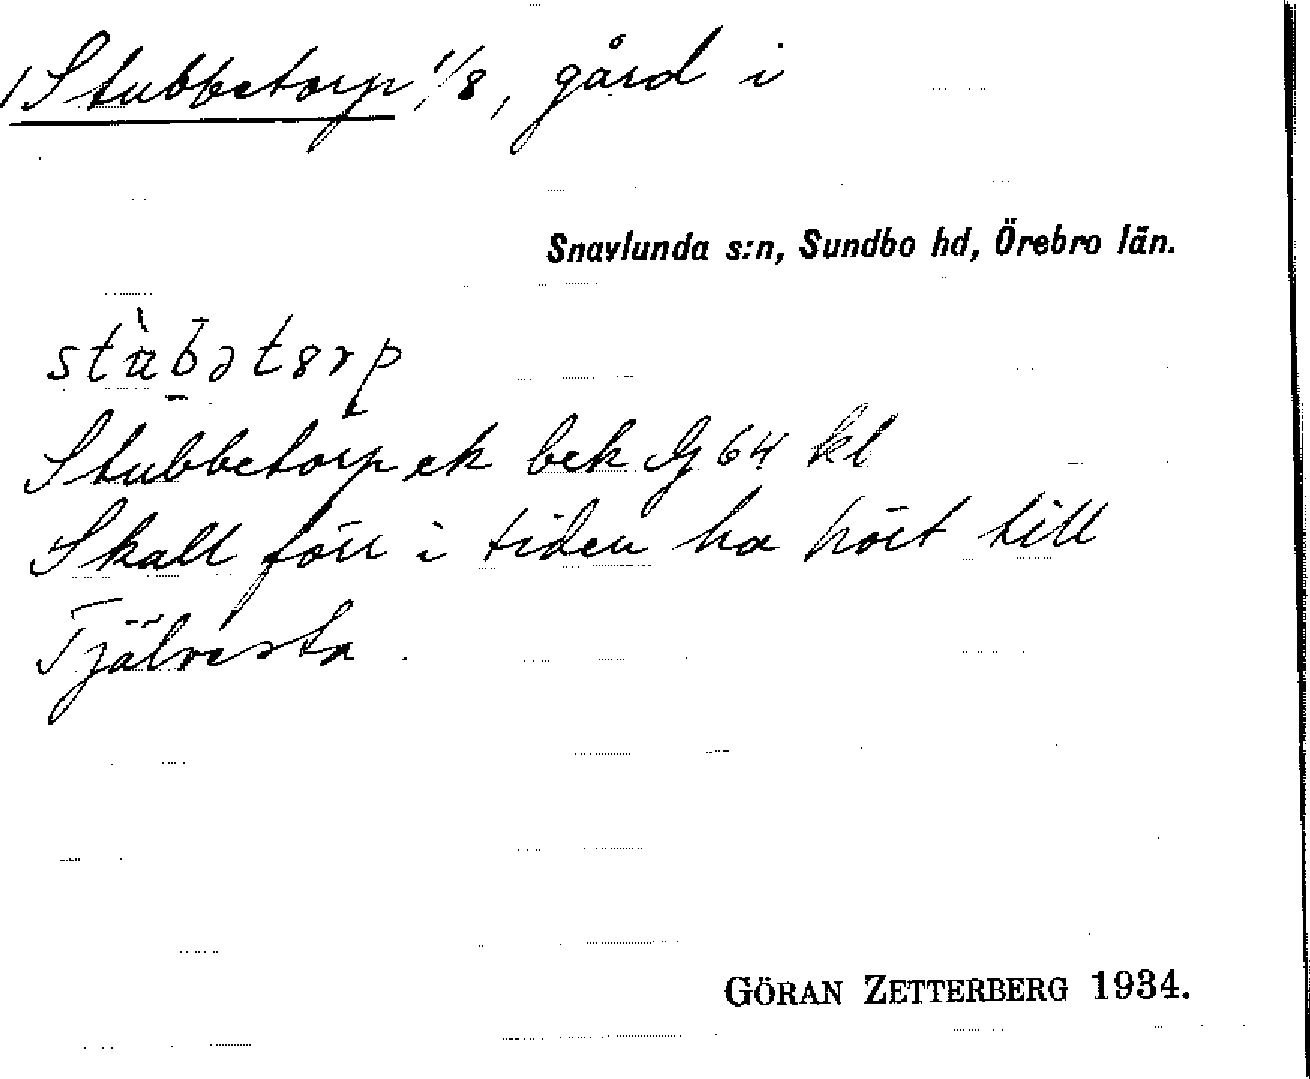 1 Stubbetorp 1/8, gård i
Snavlunda s:n, Sundbo hd, Örebro län.
Stubbetorp ek bek Ig 64 kl
Skall förr i tiden ha hört till
Tjälvesta.
GÖRAN ZETTERBERG 1934.